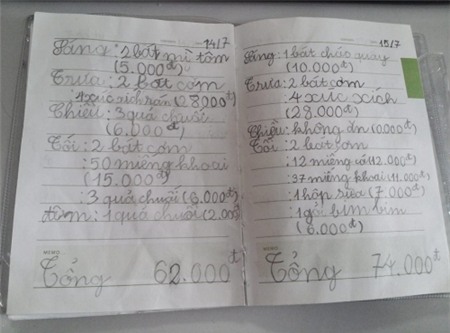 14/7
Sáng: 2 bát mì tôm
(5.000đ)
Trưa: 2 bát cơm
4 xúc xích rán (28000đ)
Chiều: 3 quả chuối
(6.000đ)
Tối: 2 bát cơm
: 50 miếng khoai
(15.000đ)
: 3 quả chuối (6.000đ)
đêm: 1 quả chuối (2.000
MEMO
Tổng 62.000đ
15/7
Sáng: 1 bát cháo quẩy
(10.000đ)
Trưa: 2 bát cơm
4 xúc xích
(28.000đ)
Chiều: không ăn (0.000đ)
Tối: 2 bát cơm
: 12 miếng cá (12.000đ)
: 37 miếng khoai (11.000đ)
: 1 hộp sữa (7.000đ)
: 1 gói bim bim
(6.000đ)
MEMO
Tổng 74.000đ